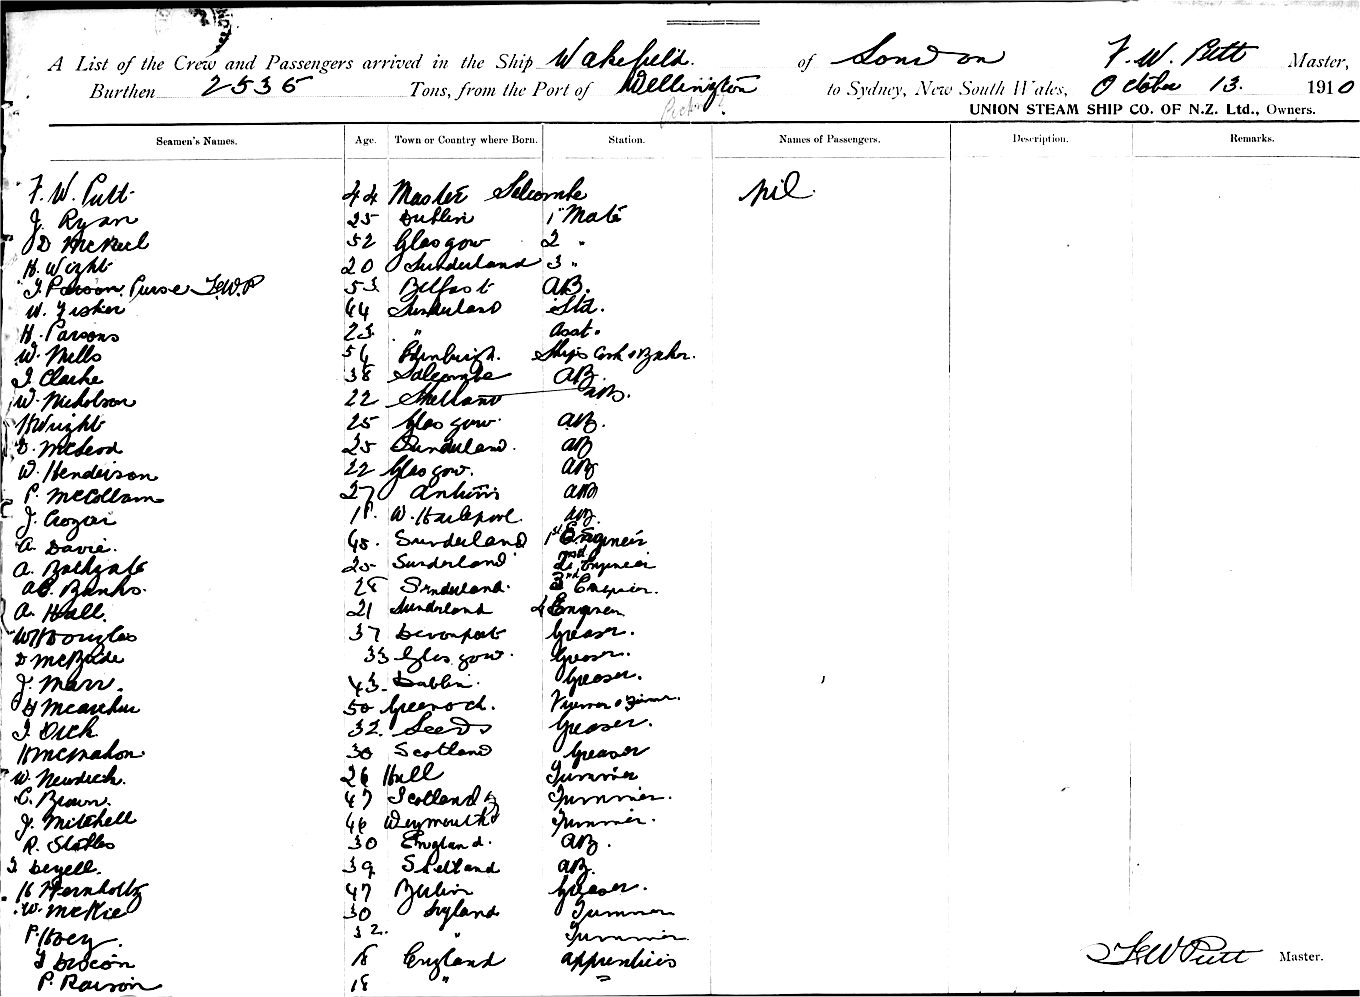 A List of the Crew and Passengers arrived in the Ship Wakefield of London F. W. Pitt Master,
Burthen 2536 Tons, from the Port of Wellington to Sydney, New South Wales, October 13. 1910
UNION STEAM SHIP CO. OF N.Z. Ltd., Owners.
Seamen's Names. Age. Town or Country where Born. Station. Names of Passengers. Description. Remarks.
F. W. Pitt 44 Master Salcombe nil
J. Ryan 25 Dublin 1" Mate
D McNeil 52 Glasgow 2 "
H. Wight 20 Sunderland 3 "
Purse F.W.P 53 Belfast AB.
W. Fisher 44 Sunderland Std.
H. Parsons 23 " Asst.
W. Mills 54 Edinburgh. Ships Cook & Baker.
J Clarke 38 Salcombe AB.
W. Nicholson 22 Shetland AB.
H Wright 25 Glasgow. AB.
D. McLeod 25 Sunderland. AB
W. Henderson 22 Glasgow. AB
P. McCollam 27 Antrim AB
J. Crozier 18. W. Hartlepool. AB.
A. Davie. 45. Sunderland 1st Engineer
A. Bathgate 25 Sunderland 2nd Engineer
Banks. 28 Sunderland. 3rd Engineer.
A. Hall. 21 Sunderland 4 Engineer
W H Douglas 37 Devonport Greaser.
D McBride 33 Glasgow. Greaser.
J. Marr. 43. Dublin. Greaser.
McArthur 50 Greenock. Fireman & Trimmer.
J. Dick 32. Leeds Greaser.
H McMahon 30 Scotland Greaser
W. Newdick. 26 Hull Trimmer
C. Brown. 47 Scotland Trimmer.
J. Mitchell 46 Weymouth Trimmer.
R. 30 England. AB.
39 Shetland AB.
H Wernholtz 47 Berlin Greaser.
W. McKie 30 England Trimmer
P. Hoey. 32. " Trimmer
18 England apprentice
P. 18 " "
F W Pitt Master.